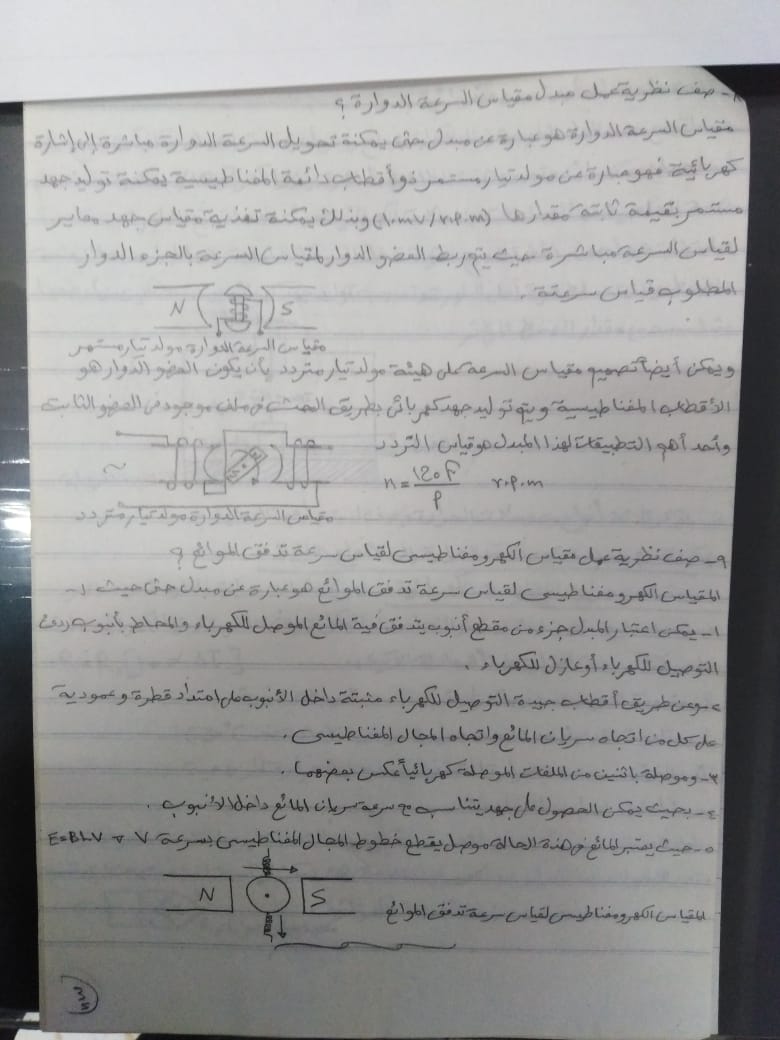 ٨- صف نظرية عمل مبدل مقياس السرعة الدوارة ؟
مقياس السرعة الدوارة هو عبارة عن مبدل حثى يمكنة تحويل السرعة الدوارة مباشرة إلى إشارة
كهربائية فهو عبارة عن مولد تيار مستمر ذو أقطاب دائمة المغناطيسية يمكنة توليد جهد
مستمر بقيمة ثابتة مقدارها (10mv/r.p.m) وبذلك يمكنة تغذية مقياس جهد معاير
لقياس السرعة مباشرة حيث يتم ربط العضو الدوار لمقياس السرعة بالجزء الدوار
المطلوب قياس سرعتة .
N S
مقياس السرعة الدوارة مولد تيار مستمر
ويمكن أيضاً تصميم مقياس السرعة على هيئة مولد تيار متردد بأن يكون العضو الدوار هو
الأقطاب المغناطيسية ويتم توليد جهد كهربائى بطريق الحث فى ملف موجود فى العضو الثابت
وأحد أهم التطبيقات لهذا المبدل هو قياس التردد
n = 120F / P r.p.m
~
مقياس السرعة الدوارة مولد تيار متردد
٩- صف نظرية عمل مقياس الكهرومغناطيسى لقياس سرعة تدفق الموائع ؟
المقياس الكهرومغناطيسى لقياس سرعة تدفق الموائع هو عبارة عن مبدل حثى حيث :-
١- يمكن اعتبار المبدل جزء من مقطع أنبوب يتدفق فية المائع الموصل للكهرباء والمحاط بأنبوب ردئ
التوصيل للكهرباء أو عازل للكهرباء .
٢- وعن طريق أقطاب جيدة التوصيل للكهرباء مثبتة داخل الأنبوب على امتداد قطرة وعمودية
على كل من اتجاه سريان المائع واتجاه المجال المغناطيسى .
٣- وموصلة باثنين من الملفات الموصلة كهربائياً عكس بعضهما .
٤- بحيث يمكن الحصول على جهد يتناسب مع سرعة سريان المائع داخل الأنبوب .
٥- حيث يعتبر المائع فى هذة الحالة موصل يقطع خطوط المجال المغناطيسى بسرعة V E=BLV
N S
المقياس الكهرومغناطيسى لقياس سرعة تدفق الموائع